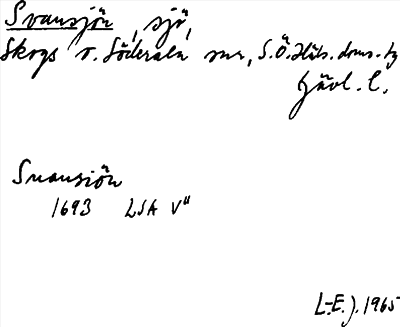 Svansjön, sjö,
Skogs o. Söderala snr, S.Ö. Häls. doms. tg
Gävl. l.
Suansiön
1693 LSA V"
L-E. J. 1965